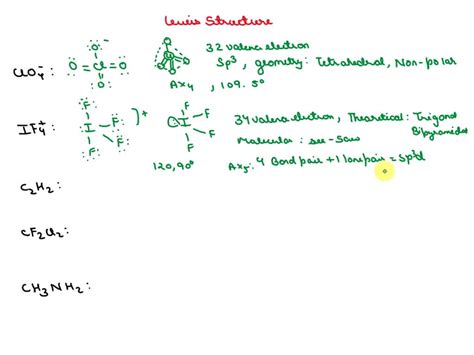 Lewis Structure
ClO4-:
O
O=Cl=O
O
32 valence electron
Sp3, geometry: Tetrahedral, Non-polar
AX4, 109.5°
IF4+:
F
I-F
F
F
+
I
F
F
F
F
34 valence electron, Theoretical: Trigonal Bipyramidal
Molecular: see-Saw
120, 90°
AX5: 4 Bond pair + 1 lone pair = sp3d
C2H2:
CF2Cl2:
CH3NH2: